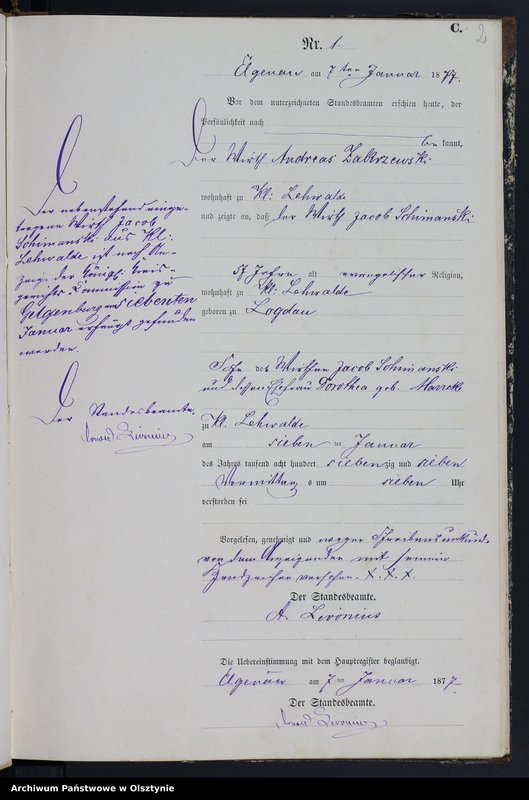 C.
2
Nr. 1.
Elgenau am 7ten Januar 1877.
Vor dem unterzeichneten Standesbeamten erschien heute, der
Persönlichkeit nach
be kannt,
der Wirth Andreas Zakrzewski
wohnhaft zu Kl. Lehwalde
und zeigte an, daß der Wirth Jacob Schimanski
57 Jahre alt evangelischer Religion,
wohnhaft zu Kl. Lehwalde
geboren zu Logdau
Sohn des Wirthen Jacob Schimanski
und dessen Ehefrau Dorothea geb. Marrek
zu Kl. Lehwalde
am sieben ten Januar
des Jahres tausend acht hundert siebenzig und sieben
Vormittags um sieben Uhr
verstorben sei
Vorgelesen, genehmigt und wegen Schreibensunkunde
von dem Anzeigenden mit seinem
Handzeichen versehen. X. X. X.
Der Standesbeamte.
A. Livonius
Die Uebereinstimmung mit dem Hauptregister beglaubigt.
Elgenau am 7 ten Januar 1877.
Der Standesbeamte.
Livonius
Der nebenstehend einge-
tragene Wirth Jacob
Schimanski aus Kl.
Lehwalde ist nach An-
zeige der Königl. Kreis-
gerichts-Commission zu
Gilgenburg am siebenten
Januar erhängt gefunden
worden.
Der Standesbeamte.
Livonius
Archiwum Państwowe w Olsztynie